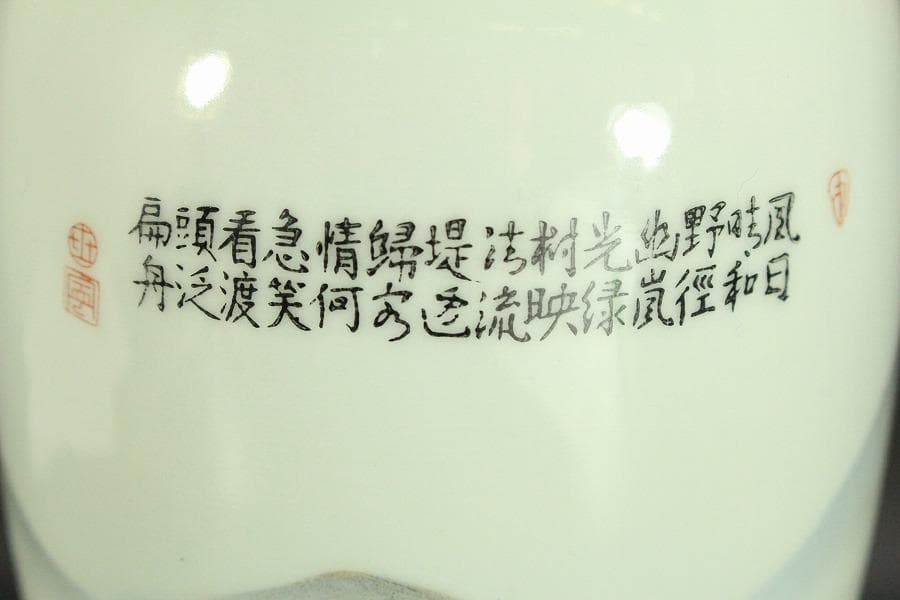 風日
晴和
野徑
幽嵐
光绿
树映
清流
堤
歸客
情何
急笑
看渡
頭泛
扁舟